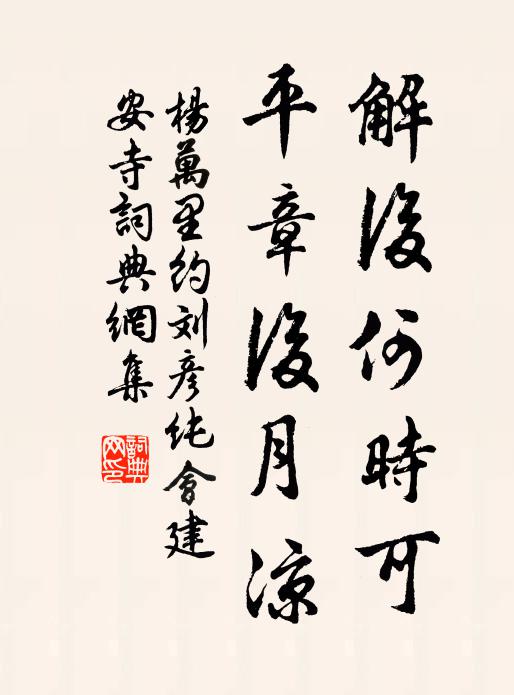 解後何時可
平章後月涼
楊萬里約刘彥純會建
安寺詞典網集
詞典
网印